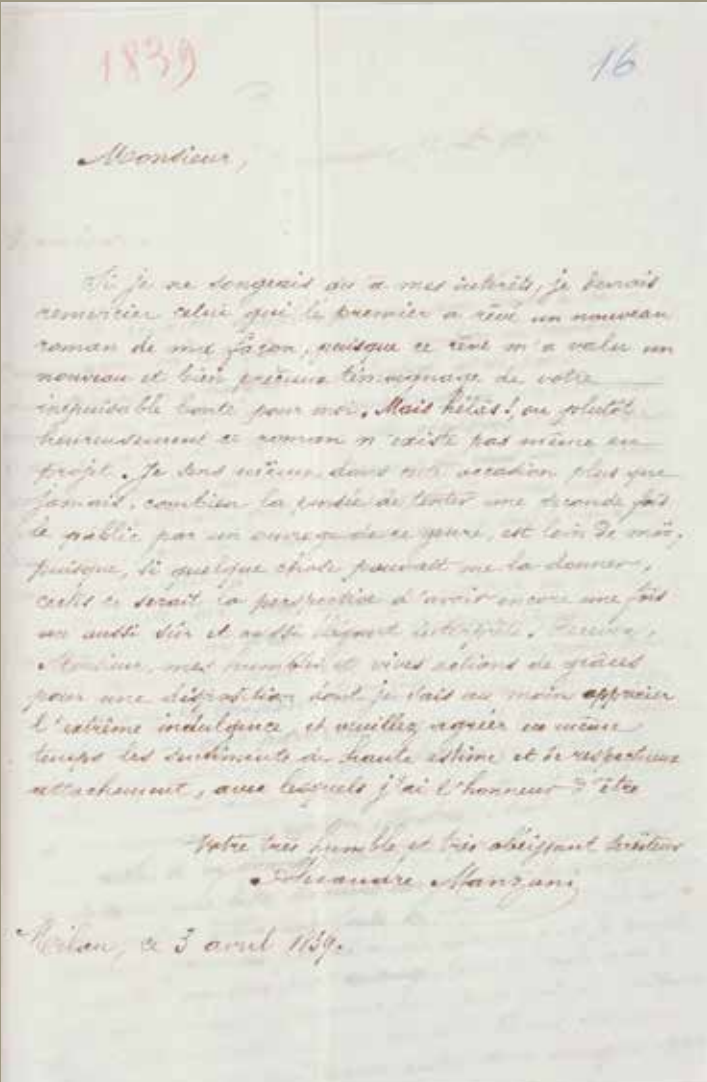 1839
16
Monsieur,
Si je ne songeais qu'à mes intérêts, je devrais
remercier celui qui le premier a rêvé un nouveau
roman de ma façon, puisque ce rêve m'a valu un
nouveau et bien précieux témoignage de votre
inépuisable bonté pour moi. Mais hélas!, ou plutôt
heureusement ce roman n'existe pas même en
projet. Je sens même dans cette occasion plus que
jamais, combien la pensée de tenter une seconde fois
le public par un ouvrage de ce genre, est loin de moi,
puisque, si quelque chose pouvait me la donner,
ce serait la perspective d'avoir encore une fois
un aussi sûr et aussi élégant interprète. Recevez,
Monsieur, mes humbles et vives actions de grâces
pour une disposition dont je sais au moin apprécier
l'extrême indulgence, et veuillez agréer en même
temps les sentiments de haute estime et de respectueux
attachement, avec lesquels j'ai l'honneur d'être
Votre très humble et très obéissant serviteur
Alexandre Manzoni
Milan, ce 3 avril 1839.